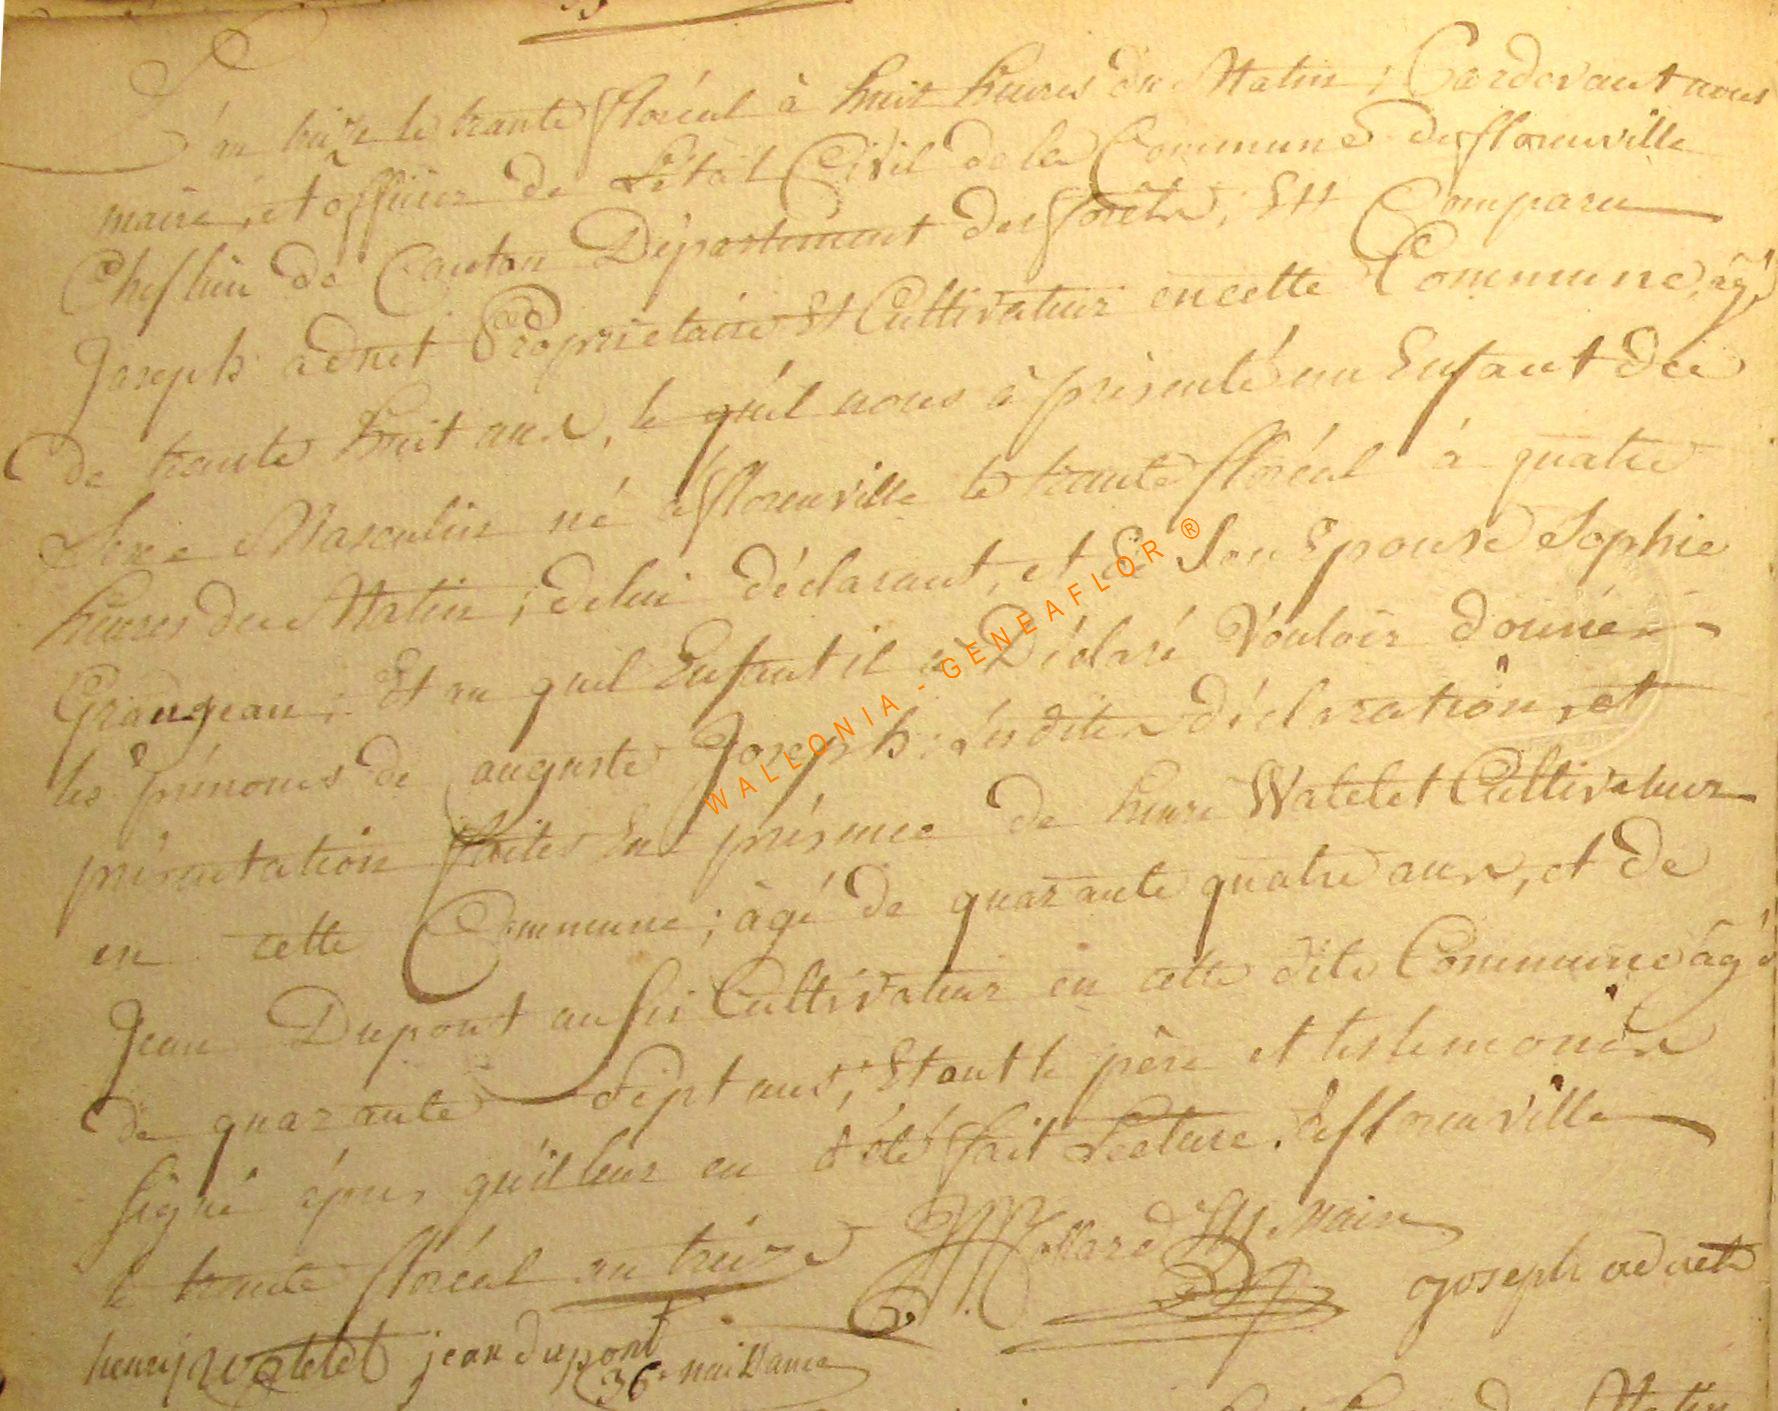 L'an treize le trante floréal à huit heures du Matin, Pardevant nous
maire, et officier de L'état Civil de la Commune de florenville
Cheflieu de Canton Département des forêts, Est Comparu
Joseph adnet Proprietaire Et Cultivateur en cette Commune, âgé
de trante huit ans, le quel nous à présenté un Enfant du
Sexe Masculin né à florenville le trante floréal à quatre
heures du Matin, de lui déclarant, et de Son Epouse Sophie
Grangean; Et au quel Enfant il a Déclaré Vouloir donné
les prénoms de auguste Joseph. Les dites déclaration, et
présentation faites En présence de henri Watelet Cultivateur
en cette Commune; âgé de quarante quatre ans, et de
Jean Dupont aussi Cultivateur en cette dite Commune âgé
de quarante Sept ans; Et ont le père et les temoins
Signé après qu'il leur en à été fait Lecture. à florenville
le trante floréal an treize Collard Maire
Joseph adnet
henry watelet jean dupont
36e naissance
Matin
WALLONIA - GENEAFLOR ®